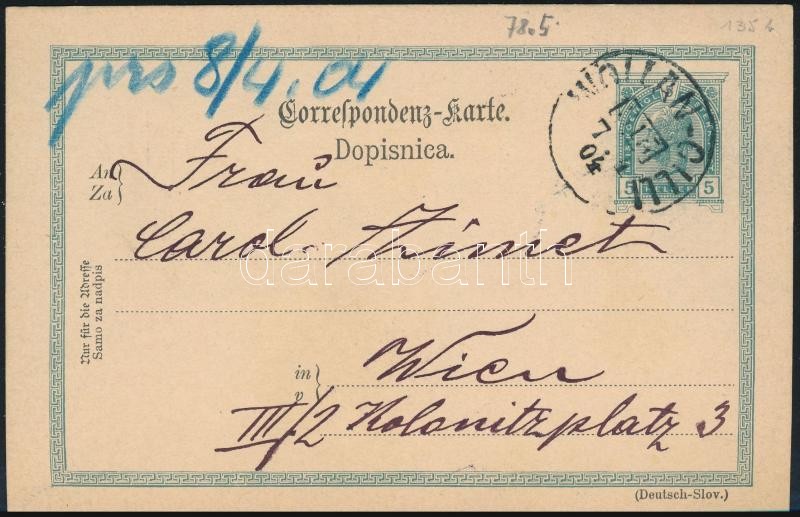 78.5
135 b
prs 8/4. 04
Correspondenz-Karte.
Dopisnica.
WÖLLAN-CILLI
7
4
04
5 5
An
Za
Frau
Carol. Zimet
Nur für die Adresse
Samo za nadpis
in
v
Wien
III/2 Kolonitzplatz 3
(Deutsch-Slov.)
darabanth